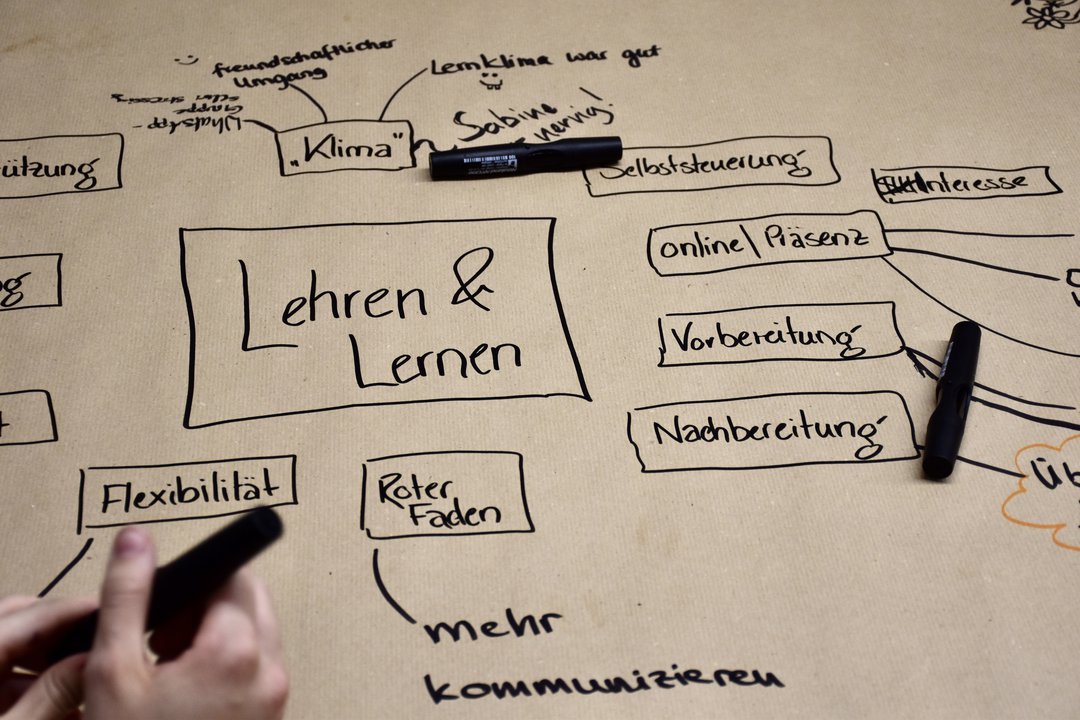 freundschaftlicher
Umgang
Lernklima war gut
WhatsApp-
Gruppe
„Klima“
Sabine
nervig!
ützung
Selbststeuerung
Interesse
online\Präsenz
Lehren &
Lernen
Vorbereitung
Nachbereitung
Flexibilität
Roter
Faden
Üb
mehr
kommunizieren